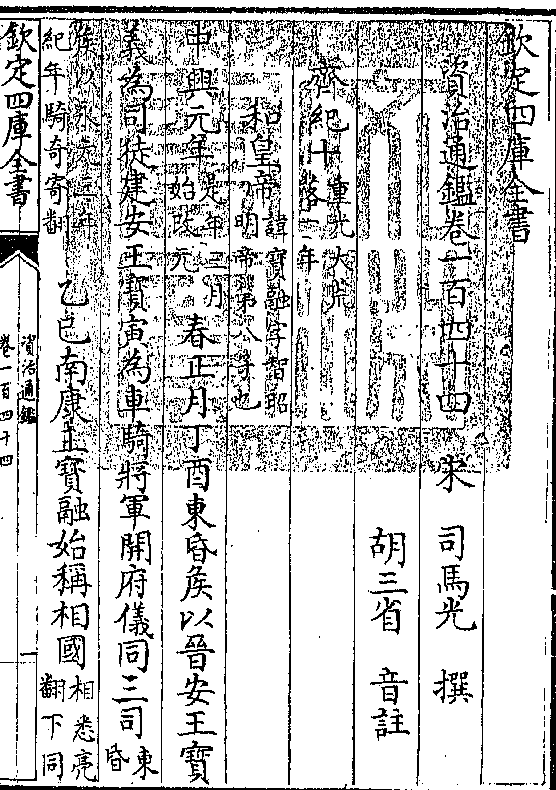 欽定四庫全書
資治通鑑卷一百四十四
宋 司馬光 撰
胡三省 音註
齊紀十重光大荒落一年
和皇帝諱寶融字智昭明帝第八子也
中興元年是年三月始改元春正月丁酉東昏侯以晉安王寶
義為司徒建安王寶寅為車騎將軍開府儀同三司東昏
侯以永元三年紀年騎奇寄翻乙巳南康王寶融始稱相國相悉亮翻下同
欽定四庫全書
資治通鑑
卷一百四十四
一